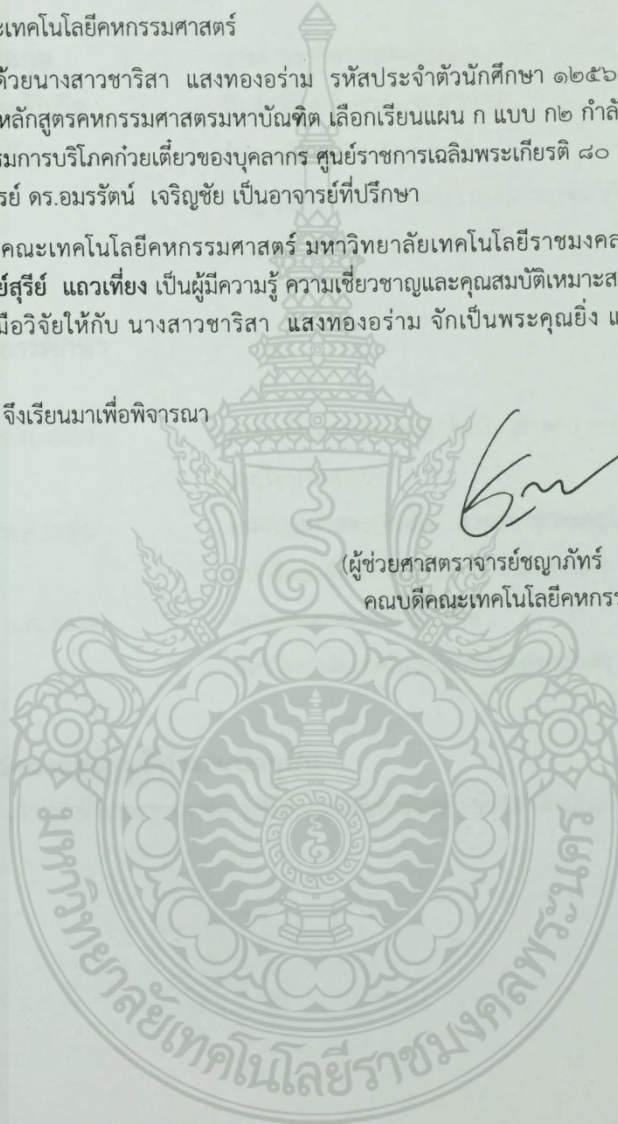 ะเทคโนโลยีคหกรรมศาสตร์
ด้วยนางสาวชาริสา แสงทองอร่าม รหัสประจำตัวนักศึกษา ๑๒๕๖
หลักสูตรคหกรรมศาสตรมหาบัณฑิต เลือกเรียนแผน ก แบบ ก๒ กำลั
รมการบริโภคก๋วยเตี๋ยวของบุคลากร ศูนย์ราชการเฉลิมพระเกียรติ ๘๐
รย์ ดร.อมรรัตน์ เจริญชัย เป็นอาจารย์ที่ปรึกษา
คณะเทคโนโลยีคหกรรมศาสตร์ มหาวิทยาลัยเทคโนโลยีราชมงคล
ย์สุรีย์ แถวเที่ยง เป็นผู้มีความรู้ ความเชี่ยวชาญและคุณสมบัติเหมาะส
มือวิจัยให้กับ นางสาวชาริสา แสงทองอร่าม จักเป็นพระคุณยิ่ง แ
จึงเรียนมาเพื่อพิจารณา
(ผู้ช่วยศาสตราจารย์ชญาภัทร์
คณบดีคณะเทคโนโลยีคหกรร
มหาวิทยาลัยเทคโนโลยีราชมงคลพระนคร